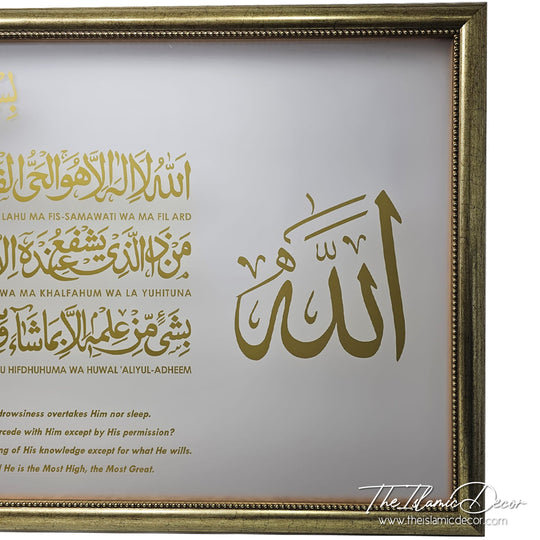 اللَّهُ لَا إِلَٰهَ إِلَّا هُوَ الْحَيُّ
LAHU MA FIS-SAMAWATI WA MA FIL ARD
مَن ذَا الَّذِي يَشْفَعُ عِندَهُ
WA MA KHALFAHUM WA LA YUHITUNA
بِشَيْءٍ مِّنْ عِلْمِهِ إِلَّا بِمَا شَاءَ
HIFDHUHUMA WA HUWAL 'ALIYUL-ADHEEM
الله
drowsiness overtakes Him nor sleep.
with Him except by His permission?
of His knowledge except for what He wills.
He is the Most High, the Most Great.
The Islamic Decor
www.theislamicdecor.com